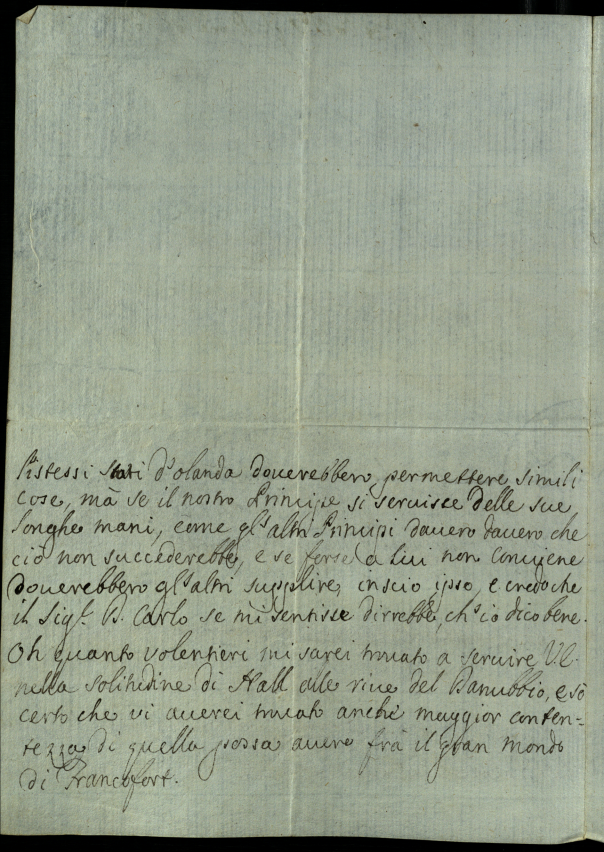 l'istessi stati d'olanda douerebbero permettere simili
cose, mà se il nostro Principe si seruisse delle sue
longhe mani, come gl'altri Principi dauero dauero che
ciò non succederebbe, e se forse a lui non conuiene
douerebbero gl'altri supplire, inscio ipso, e credo che
il Sig.r B. Carlo se mi sentisse dirrebbe, ch'io dico bene.
Oh quanto volentieri mi sarei trouato a seruire V.E.
nella solitudine di Hall alle riue del Danubbio, e sò
certo che vi auerei trouato anche maggior conten=
tezza di quella possa auere frà il gran mondo
di Francofort.